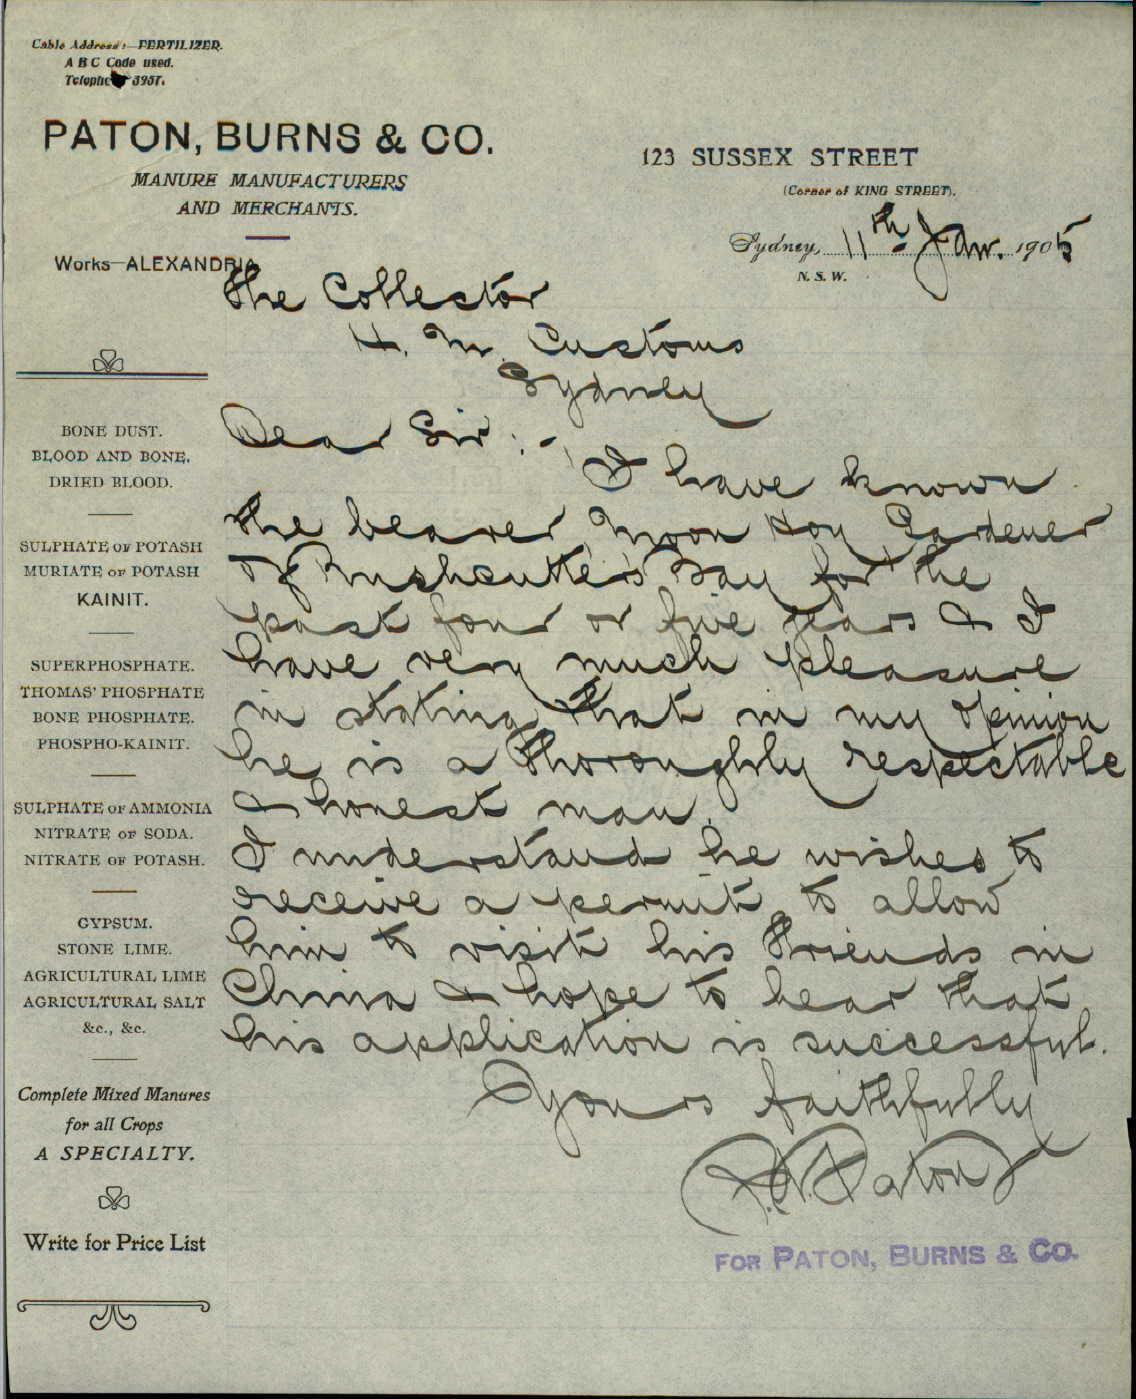 Cable Address:—FERTILIZER.
A B C Code used.
Telephone 3957.
PATON, BURNS & CO.
MANURE MANUFACTURERS
AND MERCHANTS.
Works—ALEXANDRIA
123 SUSSEX STREET
(Corner of KING STREET).
Sydney, 11th Jan. 1905
N. S. W.
The Collector
H. M. Customs
Sydney
Dear Sir :-
I have known
the bearer Moon Hoy Gardener
of Rushcutters Bay for the
past four or five years & I
have very much pleasure
in stating that in my opinion
he is a thoroughly respectable
& honest man.
I understand he wishes to
receive a permit to allow
him to visit his friends in
China & hope to hear that
his application is successful.
Yours faithfully
Paton
FOR PATON, BURNS & CO.
BONE DUST.
BLOOD AND BONE.
DRIED BLOOD.
SULPHATE OF POTASH
MURIATE OF POTASH
KAINIT.
SUPERPHOSPHATE.
THOMAS' PHOSPHATE
BONE PHOSPHATE.
PHOSPHO-KAINIT.
SULPHATE OF AMMONIA
NITRATE OF SODA.
NITRATE OF POTASH.
GYPSUM.
STONE LIME.
AGRICULTURAL LIME
AGRICULTURAL SALT
&c., &c.
Complete Mixed Manures
for all Crops
A SPECIALTY.
Write for Price List